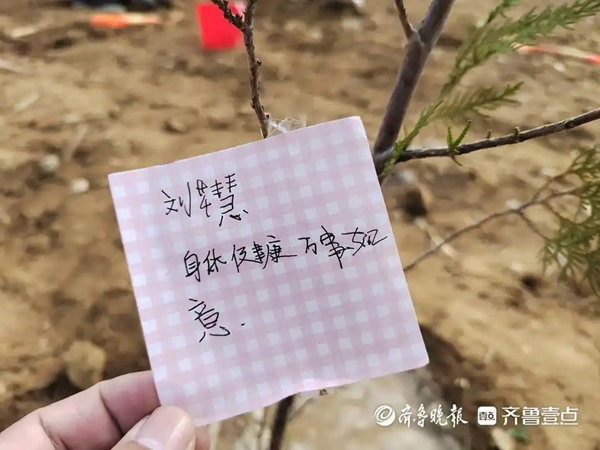 刘华慧
身体健康 万事如
意.
齐鲁晚报 壹点 齐鲁壹点